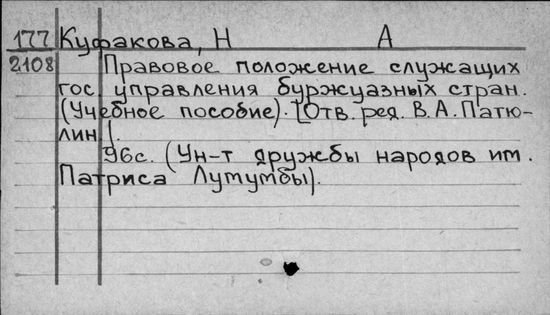 177 Куфакова, Н А
2108 Правовое положение служащих
гос управления буржуазных стран.
(Учебное пособие). [Отв. ред. В. А. Патю-
лин].
96с. (Ун-т дружбы народов им.
Патриса Лумумбы).